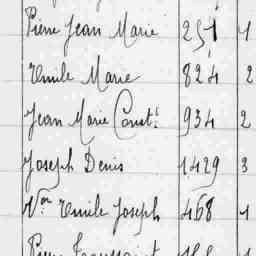 Pierre Jean Marie 251 1
Emile Marie 824 2
Jean Marie Const. 934 2
Joseph Denis 1429 3
Vor Emile Joseph 468 1
Pierre Toussaint